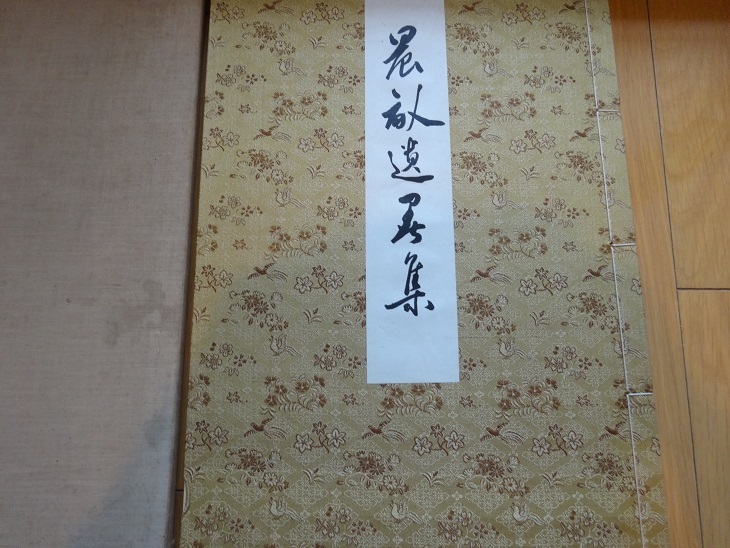 晨遺墨集